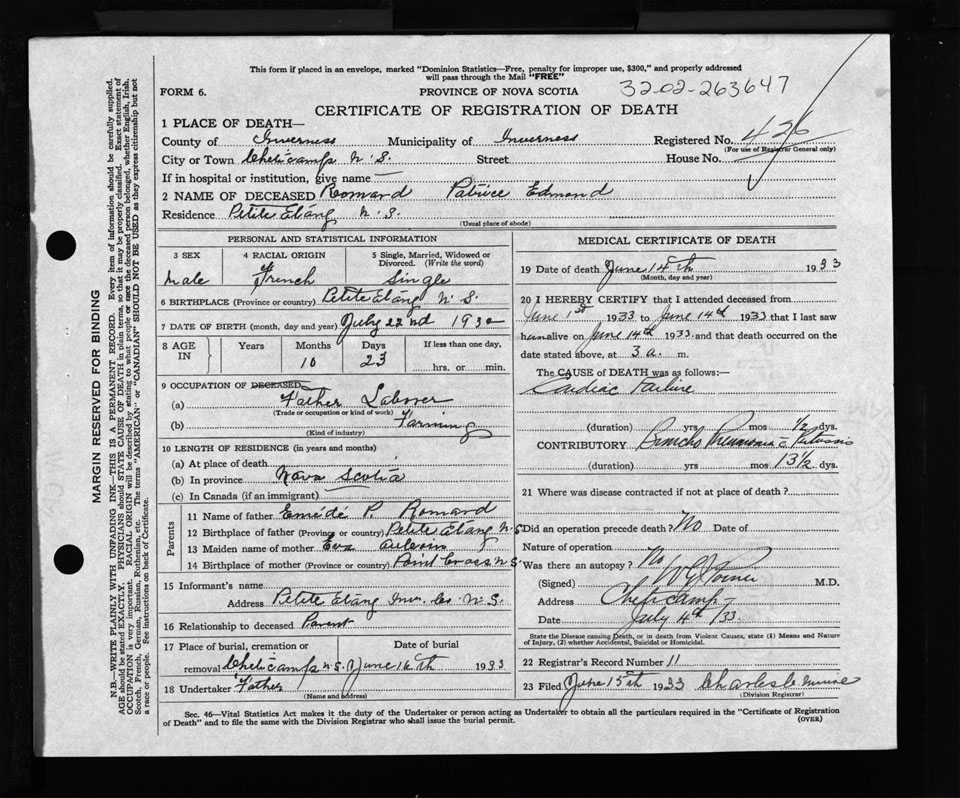 This form if placed in an envelope, marked "Dominion Statistics—Free, penalty for improper use, $300," and properly addressed
will pass through the Mail "FREE"
FORM 6.
PROVINCE OF NOVA SCOTIA
32-02-263647
CERTIFICATE OF REGISTRATION OF DEATH
1 PLACE OF DEATH—
County of Inverness Municipality of Inverness Registered No. 426
(For use of Registrar General only)
City or Town Cheticamp N. S. Street House No.
If in hospital or institution, give name —
2 NAME OF DECEASED Romard Patrice Edmond
Residence Petite Etang N. S.
(Usual place of abode)
PERSONAL AND STATISTICAL INFORMATION
3 SEX 4 RACIAL ORIGIN 5 Single, Married, Widowed or Divorced. (Write the word)
Male French Single
6 BIRTHPLACE (Province or country) Petite Etang N. S.
7 DATE OF BIRTH (month, day and year) July 22nd 1932
8 AGE IN Years Months Days If less than one day,
10 23 hrs. or min.
9 OCCUPATION OF DECEASED
(a) Father Laborer
(Trade or occupation or kind of work)
(b) Farming
(Kind of industry)
10 LENGTH OF RESIDENCE (in years and months)
(a) At place of death
(b) In province Nova Scotia
(c) In Canada (if an immigrant)
Parents
11 Name of father Emédé P. Romard
12 Birthplace of father (Province or country) Petite Etang N. S.
13 Maiden name of mother Eva
14 Birthplace of mother (Province or country) Point Cross N. S.
15 Informant's name
Address Petite Etang Inv. Co. N. S.
16 Relationship to deceased Parent
17 Place of burial, cremation or Date of burial
removal Cheticamp N. S. June 16th 1933
18 Undertaker Father
(Name and address)
MEDICAL CERTIFICATE OF DEATH
19 Date of death June 14th 1933
(Month, day and year)
20 I HEREBY CERTIFY that I attended deceased from
June 1st 1933 to June 14th 1933 that I last saw
him alive on June 14th 1933 and that death occurred on the
date stated above, at 3 a. m.
The CAUSE OF DEATH was as follows:—
Cardiac Failure
(duration) yrs mos ½ dys.
CONTRIBUTORY Broncho Pneumonia c Pertussis
(duration) yrs mos 13½ dys.
21 Where was disease contracted if not at place of death?
Did an operation precede death? No Date of
Nature of operation
Was there an autopsy? No
(Signed) M.D.
Address Cheticamp
Date July 4th /33
State the Disease causing Death, or in death from Violent Causes, state (1) Means and Nature
of Injury, (2) whether Accidental, Suicidal or Homicidal.
22 Registrar's Record Number 11
23 Filed June 15th 1933 Charles
(Division Registrar)
Sec. 46—Vital Statistics Act makes it the duty of the Undertaker or person acting as Undertaker to obtain all the particulars required in the "Certificate of Registration
of Death" and to file the same with the Division Registrar who shall issue the burial permit.
(OVER)
MARGIN RESERVED FOR BINDING
N.B.—WRITE PLAINLY WITH UNFADING INK—THIS IS A PERMANENT RECORD. Every item of information should be carefully supplied.
AGE should be stated EXACTLY. PHYSICIANS should STATE CAUSE OF DEATH in plain terms, so that it may be properly classified. Exact statement of
OCCUPATION is very important. RACIAL ORIGIN will be described by stating to what people or race the deceased person belonged, whether English, Irish,
Scotch, French, German, Russian, Ruthenian, etc. The terms "AMERICAN" or "CANADIAN" SHOULD NOT BE USED as they express citizenship but not
a race or people. See instructions on back of Certificate.